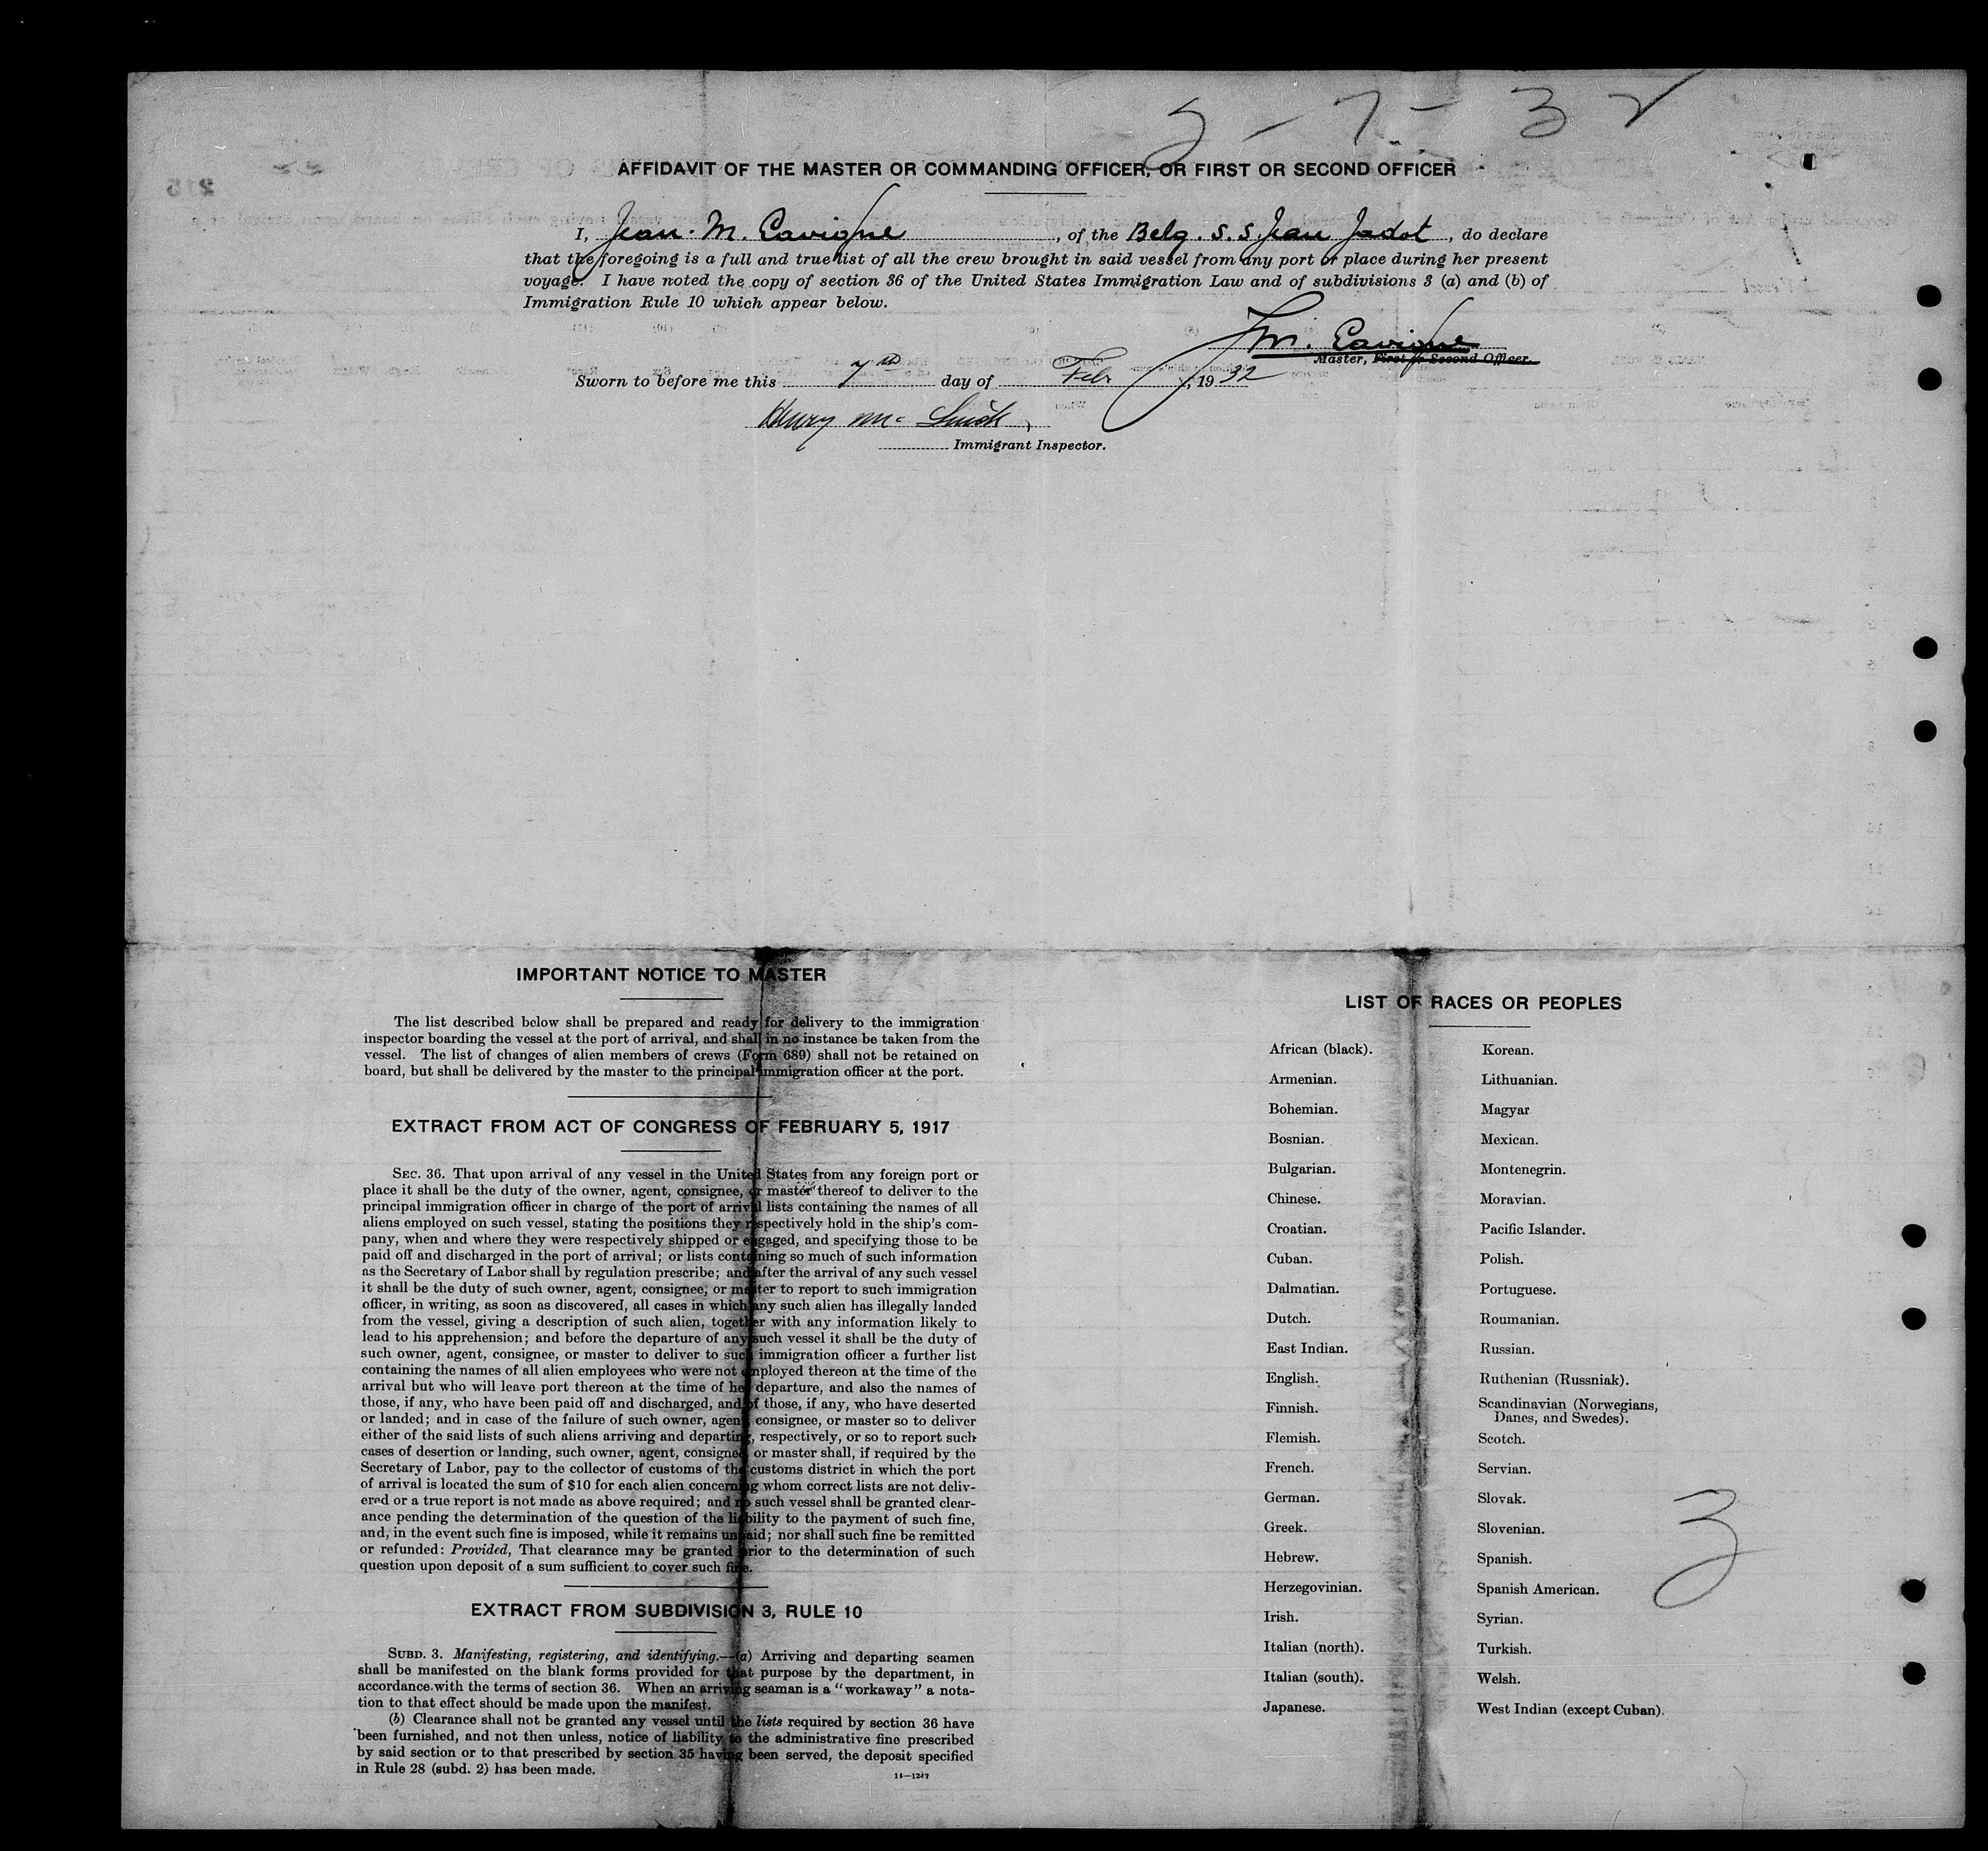 2-7-32
AFFIDAVIT OF THE MASTER OR COMMANDING OFFICER, OR FIRST OR SECOND OFFICER
I, Jean. M. Cavigne, of the Belg. S. S. Jean Jadot, do declare
that the foregoing is a full and true list of all the crew brought in said vessel from any port or place during her present
voyage. I have noted the copy of section 36 of the United States Immigration Law and of subdivisions 3 (a) and (b) of
Immigration Rule 10 which appear below.
Jm. Cavigne
Master, First or Second Officer.
Sworn to before me this 7th day of Feb, 1932
Henry Mc
Immigrant Inspector.
IMPORTANT NOTICE TO MASTER
The list described below shall be prepared and ready for delivery to the immigration
inspector boarding the vessel at the port of arrival, and shall in no instance be taken from the
vessel. The list of changes of alien members of crews (Form 689) shall not be retained on
board, but shall be delivered by the master to the principal immigration officer at the port.
EXTRACT FROM ACT OF CONGRESS OF FEBRUARY 5, 1917
SEC. 36. That upon arrival of any vessel in the United States from any foreign port or
place it shall be the duty of the owner, agent, consignee, or master thereof to deliver to the
principal immigration officer in charge of the port of arrival lists containing the names of all
aliens employed on such vessel, stating the positions they respectively hold in the ship's com-
pany, when and where they were respectively shipped or engaged, and specifying those to be
paid off and discharged in the port of arrival; or lists containing so much of such information
as the Secretary of Labor shall by regulation prescribe; and after the arrival of any such vessel
it shall be the duty of such owner, agent, consignee, or master to report to such immigration
officer, in writing, as soon as discovered, all cases in which any such alien has illegally landed
from the vessel, giving a description of such alien, together with any information likely to
lead to his apprehension; and before the departure of any such vessel it shall be the duty of
such owner, agent, consignee, or master to deliver to such immigration officer a further list
containing the names of all alien employees who were not employed thereon at the time of the
arrival but who will leave port thereon at the time of her departure, and also the names of
those, if any, who have been paid off and discharged, and of those, if any, who have deserted
or landed; and in case of the failure of such owner, agent, consignee, or master so to deliver
either of the said lists of such aliens arriving and departing, respectively, or so to report such
cases of desertion or landing, such owner, agent, consignee, or master shall, if required by the
Secretary of Labor, pay to the collector of customs of the customs district in which the port
of arrival is located the sum of $10 for each alien concerning whom correct lists are not deliv-
ered or a true report is not made as above required; and no such vessel shall be granted clear-
ance pending the determination of the question of the liability to the payment of such fine,
and, in the event such fine is imposed, while it remains unpaid; nor shall such fine be remitted
or refunded: Provided, That clearance may be granted prior to the determination of such
question upon deposit of a sum sufficient to cover such fine.
EXTRACT FROM SUBDIVISION 3, RULE 10
SUBD. 3. Manifesting, registering, and identifying.—(a) Arriving and departing seamen
shall be manifested on the blank forms provided for that purpose by the department, in
accordance with the terms of section 36. When an arriving seaman is a "workaway" a nota-
tion to that effect should be made upon the manifest.
(b) Clearance shall not be granted any vessel until the lists required by section 36 have
been furnished, and not then unless, notice of liability to the administrative fine prescribed
by said section or to that prescribed by section 35 having been served, the deposit specified
in Rule 28 (subd. 2) has been made.
LIST OF RACES OR PEOPLES
African (black).
Armenian.
Bohemian.
Bosnian.
Bulgarian.
Chinese.
Croatian.
Cuban.
Dalmatian.
Dutch.
East Indian.
English.
Finnish.
Flemish.
French.
German.
Greek.
Hebrew.
Herzegovinian.
Irish.
Italian (north).
Italian (south).
Japanese.
Korean.
Lithuanian.
Magyar
Mexican.
Montenegrin.
Moravian.
Pacific Islander.
Polish.
Portuguese.
Roumanian.
Russian.
Ruthenian (Russniak).
Scandinavian (Norwegians,
Danes, and Swedes).
Scotch.
Servian.
Slovak.
Slovenian.
Spanish.
Spanish American.
Syrian.
Turkish.
Welsh.
West Indian (except Cuban).
3